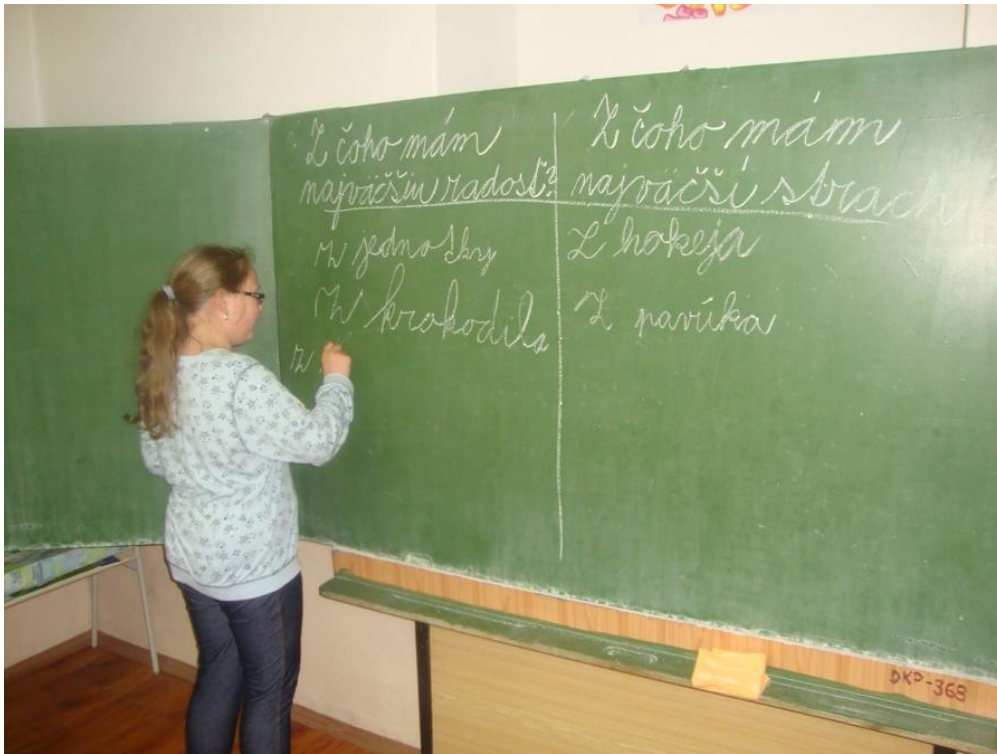 Z čoho mám
najväčšiu radosť?
z jednotky
z krokodíla
z
Z čoho mám
najväčší strach
Z hokeja
Z pavúka
DKP-368